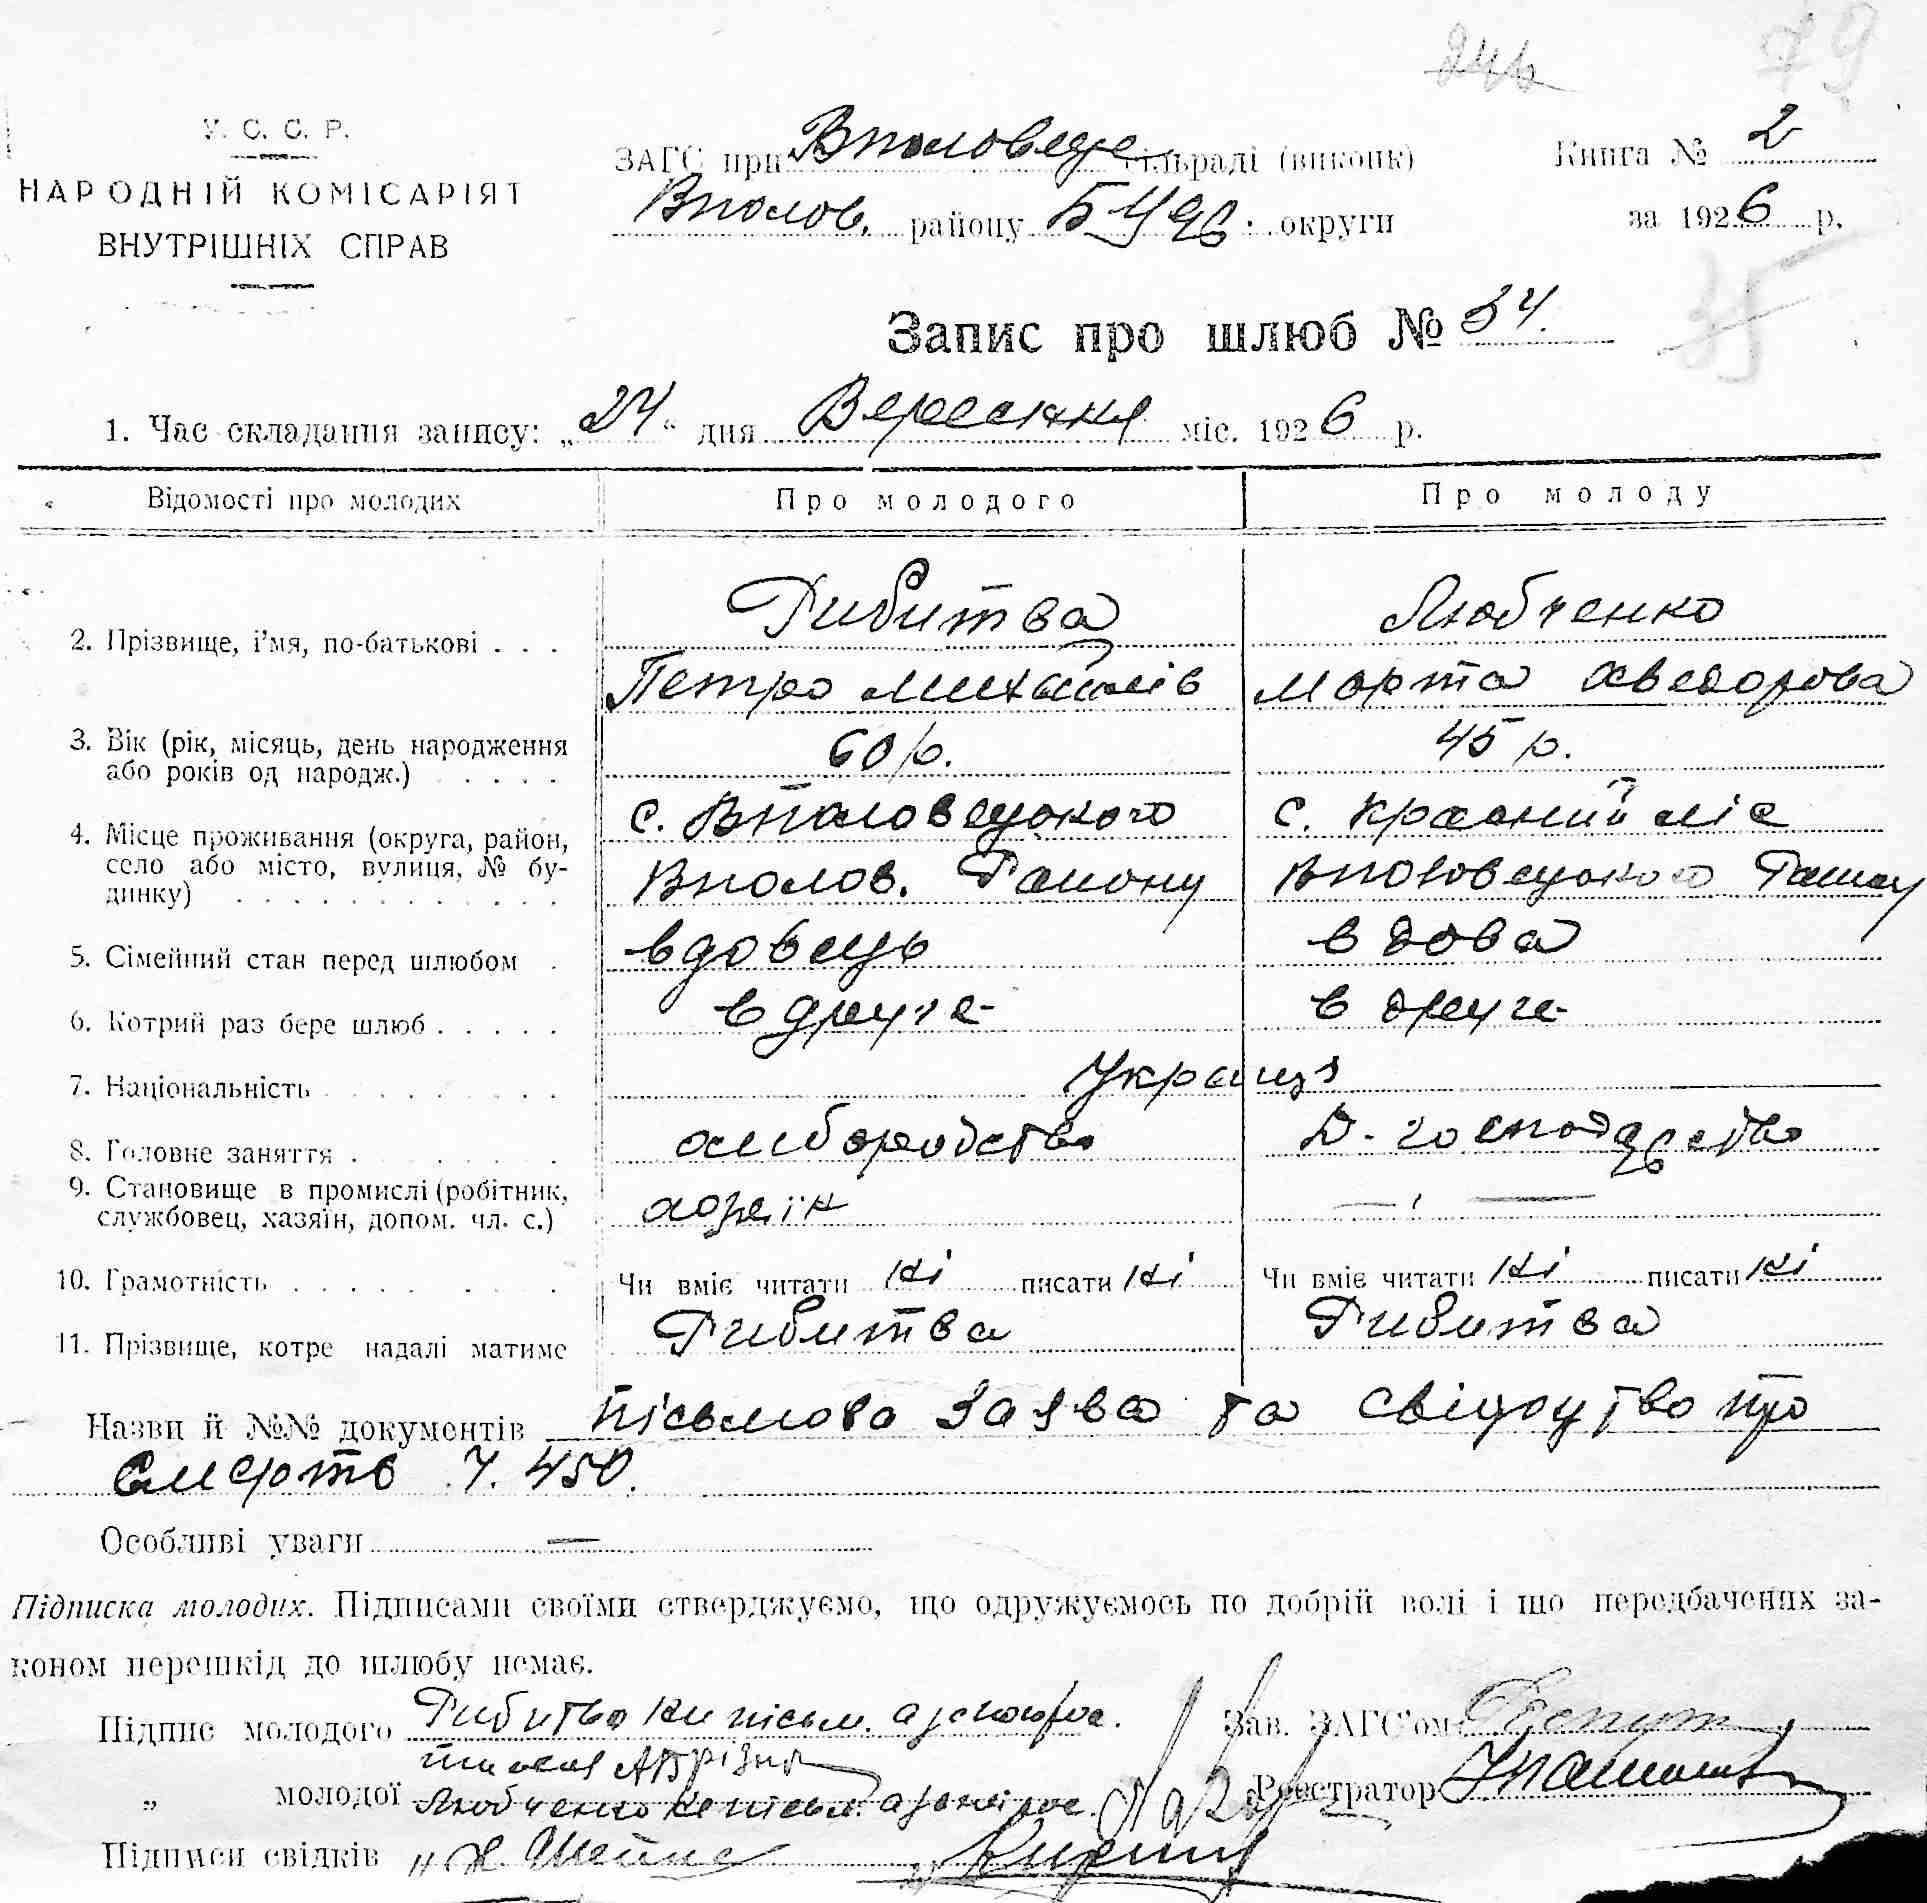 79
У. С. С. Р.
НАРОДНІЙ КОМІСАРІЯТ
ВНУТРІШНІХ СПРАВ
ЗАГС при Вполовецьк сільраді (виконк)
Книга № 2
Вполов. району БЦер. округи
за 1926 р.
35
Запис про шлюб № 34.
1. Час складання запису: „24“ дня Вересння міс. 1926 р.
Відомості про молодих
Про молодого
Про молоду
2. Прізвище, і’мя, по-батькові . . .
Рибитва
Петро Михайлів
Любченко
Марта
3. Вік (рік, місяць, день народження
або років од народж.) . . . .
60 р.
45 р.
4. Місце проживання (округа, район,
село або місто, вулиця, № бу-
динку) . . . . . . . . . . . .
с. Вполовецького
Вполов. Району
с. Красний ліс
Вполовецького Району
5. Сімейний стан перед шлюбом .
вдовець
вдова
6. Котрий раз бере шлюб . . . . .
в друге
в друге
7. Національність . . . . . . . . .
Українці
8. Головне заняття . . . . . . .
хліборобство
Д. господарство
9. Становище в промислі (робітник,
службовец, хазяїн, допом. чл. с.)
— „ —
10. Грамотність . . . . . . . . .
Чи вміє читати ні писати ні
Чи вміє читати ні писати ні
11. Прізвище, котре надалі матиме
Рибитва
Рибитва
Назви й №№ документів письмова заява та свідоцтво про
смерть Ч. 450.
Особливі уваги —
Підписка молодих. Підписами своїми стверджуємо, що одружуємось по добрій волі і що передбачених за-
коном перешкід до шлюбу немає.
Підпис молодого Рибитва
Зав. ЗАГС’ом
„ молодої Любченко
Реєстратор
Підписи свідків